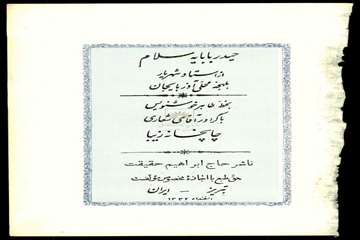 حیدربابایه سلام
از استاد شهریار
بلهجهٔ محلی آذربایجان
بخط طاهر خوشنویس
با گراور آقای شعاری
چاپخانه زیبا
ناشر حاج ابراهیم حقیقت
حق طبع با اجازهٔ مخصوص مؤلفست
تبریز - ایران